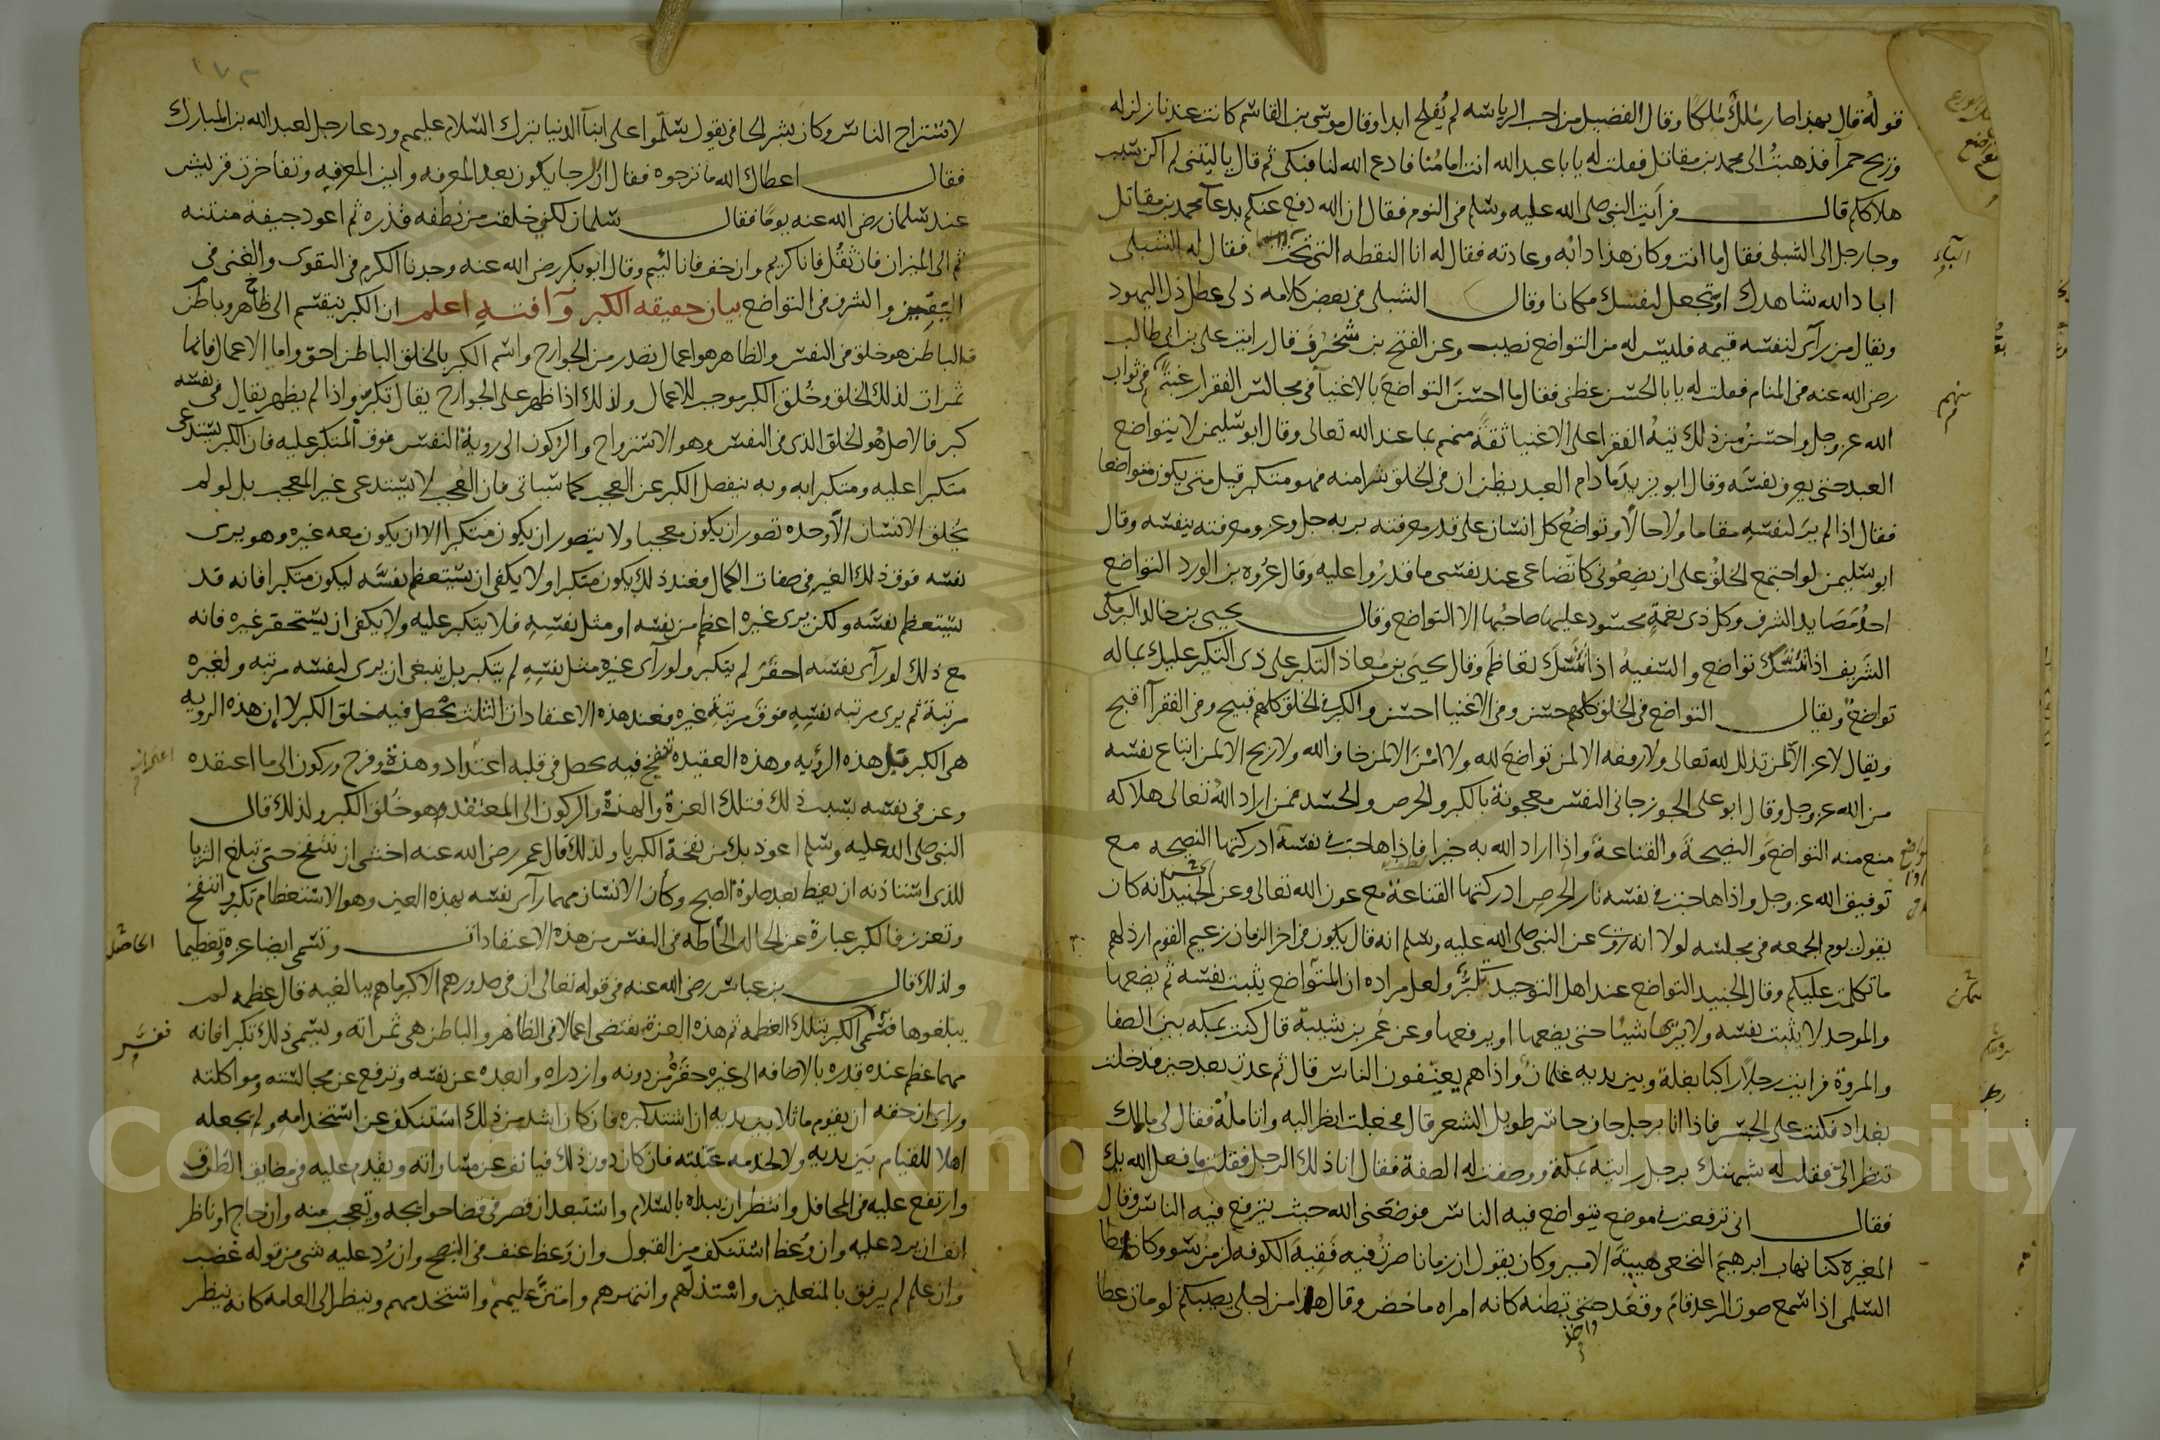 قوله قال بهذا صار ملك ملكا وقال الفضيل من احب الرياسه لم يفلح ابدا وقال موسى بن القاسم كانت عندنا زلزله
وريح حمرا فذهبت الى محمد بن مقاتل فقلت له يابا عبد الله انت امامنا فادع الله لنا فبكى ثم قال يا ليتنى لم اكن سبب
هلاككم قال فرايت النبى صلى الله عليه وسلم فى النوم فقال ان الله دفع عنكم بدعا محمد بن مقاتل
وجا رجل الى الشبلى فقال ما انت وكان هذا دابه وعادته فقال له انا النقطه التى تحت فقال له الشبلى
اباد الله شاهدك او تجعل لنفسك مكانا وقال الشبلى فى بعض كلامه ذلى عطل ذل اليهود
ويقال من رآى لنفسه قيمه فليس له من التواضع نصيب وعن الفتح بن شخرف قال رايت على بن ابى طالب
رضى الله عنه فى المنام فقلت له يابا الحسن عظنى فقال ما احسن التواضع بالاغنيا فى مجالس الفقرا رغبة منهم فى ثواب
الله عز وجل واحسن من ذلك تيه الفقرا على الاغنيا ثقة منهم بما عند الله تعالى وقال ابو سليمن لا يتواضع
العبد حتى يعرف نفسه وقال ابو يزيد ما دام العبد يظن ان فى الخلق شرا منه فهو متكبر قيل متى يكون متواضعا
فقال اذا لم ير لنفسه مقاما ولا حالا وتواضع كل انسان على قدر معرفته بربه جل وعز ومعرفته بنفسه وقال
ابو سليمن لو اجتمع الخلق على ان يضعونى كاتضاعى عند نفسى ما قدروا عليه وقال عروه بن الورد التواضع
احد مصايد الشرف وكل ذى نعمة محسود عليها صاحبها الا التواضع وقال يحيى بن خالد البرمكى
الشريف اذا تنسك تواضع والسفيه اذا تنسك تعاظم وقال يحيى بن معاذ التكبر على ذى التكبر عليك بماله
تواضع ويقال التواضع فى الخلق كلهم حسن وفى الاغنيا احسن والكبر فى الخلق كلهم قبيح وفى الفقرآ اقبح
ويقال لا عز الا لمن تذلل لله تعالى ولا رفعه الا لمن تواضع لله ولا امن الا لمن خاف الله ولا ربح الا لمن ابتاع نفسه
من الله عز وجل وقال ابو على الجوزجانى النفس معجونة بالكبر والحرص والحسد فمن اراد الله تعالى هلاكه
منع منه التواضع والنصيحة والقناعة واذا اراد الله به خيرا فاذا هاجت فى نفسه ادركتها النصيحه مع
توفيق الله عز وجل واذا هاجت فى نفسه نار الحرص ادركتها القناعة مع عون الله تعالى وعن الجنيد انه كان
يقول يوم الجمعه فى مجلسه لولا انه روى عن النبى صلى الله عليه وسلم انه قال يكون فى اخر الزمان زعيم القوم ارذلهم
ما تكلمت عليكم وقال الجنيد التواضع عند اهل التوحيد تكبر ولعل مراده ان المتواضع يثبت نفسه ثم يضعها
والموحد لا يثبت نفسه ولا يراها شيئا حتى يضعها او يرفعها وعن عمر بن شيبة قال كنت بمكه بين الصفا
والمروة فرايت رجلا راكبا بغلة وبين يديه غلمان واذا هم يعنفون الناس قال ثم عدت بعد حين فدخلت
بغداد فكنت على الجسر فاذا انا برجل حاف حاسر طويل الشعر قال فجعلت انظر اليه واتامله فقال لى مالك
تنظر الى فقلت له شبهتك برجل رايته بمكة ووصفت له الصفة فقال انا ذلك الرجل فقلت ما فعل الله بك
فقال انى ترفعت فى موضع يتواضع فيه الناس فوضعنى الله حيث يترفع فيه الناس وقال
المغيره كنا نهاب ابرهيم النخعى هيبة الامير وكان يقول ان زمانا صرت فيه فقيه الكوفه لزمن سوء وكان عطا
السلمى اذا سمع صوت الرعد قام وقعد واخذ حتى بطنه كانه امراه ماخض وقال هذا من اجلى يصيبكم لو مات عطا
البآء
منهم
١٧٢
لاستراح الناس وكان بشر الحافى يقول سلموا على ابنآ الدنيا بترك السلام عليهم ودعا رجل لعبد الله بن المبارك
فقال اعطاك الله ما ترجوه فقال ان الرجا يكون بعد المعرفه واين المعرفه وتفاخرت قريش
عند سلمان رضى الله عنه يوما فقال سلمان لكنى خلقت من نطفه قذره ثم اعود جيفة منتنه
ثم الى الميزان فان ثقل فانا كريم وان خف فانا لئيم وقال ابو بكر رضى الله عنه وجدنا الكرم فى التقوى والغنى فى
اليقين والشرف فى التواضع بيان حقيقه الكبر وآفته اعلم ان الكبر ينقسم الى ظاهر وباطن
فالباطن هو خلق فى النفس والظاهر هو اعمال تصدر من الجوارح واسم الكبر بالخلق الباطن احق واما الاعمال فانها
ثمرات لذلك الخلق وخلق الكبر موجب للاعمال ولذلك اذا ظهر على الجوارح يقال تكبر واذا لم يظهر يقال فى نفسه
كبر فالاصل هو الخلق الذى فى النفس وهو الاسترواح والركون الى روية النفس فوق المتكبر عليه فان الكبر يستدعى
متكبرا عليه ومتكبرا به وبه ينفصل الكبر عن العجب كما سياتى فان العجب لا يستدعى غير المعجب بل لو لم
يخلق الانسان الا وحده تصور ان يكون معجبا ولا يتصور ان يكون متكبرا الا ان يكون معه غيره وهو يرى
نفسه فوق ذلك الغير فى صفات الكمال فعند ذلك يكون متكبرا ولا يكفى ان يستعظم نفسه ليكون متكبرا فانه قد
يستعظم نفسه ولكن يرى غيره اعظم من نفسه او مثل نفسه فلا يتكبر عليه ولا يكفى ان يستحقر غيره فانه
مع ذلك لو رآى نفسه احقر لم يتكبر ولو رآى غيره مثل نفسه لم يتكبر بل ينبغى ان يرى لنفسه مرتبه ولغيره
مرتبة ثم يرى مرتبه نفسه فوق مرتبة غيره فعند هذه الاعتقادات الثلث يحصل فيه خلق الكبر لا ان هذه الرويه
هى الكبر بل هذه الرؤيه وهذه العقيده تنفخ فيه يحصل فى قلبه اعتداد وهزة وفرح وركون الى ما اعتقده
وعز فى نفسه بسبب ذلك فتلك العزة والهزة والركون الى المعتقد هو خلق الكبر ولذلك قال
النبى صلى الله عليه وسلم اعوذ بك من نفخة الكبريا ولذلك قال عمر رضى الله عنه اخشى ان تنتفخ حتى تبلغ الثريا
للذى استاذنه ان يعظ بعد صلوة الصبح وكان الانسان مهما رآى نفسه بهذه العين وهو الاستعظام تكبر وانتفخ
وتعزز فالكبر عبارة عن الحاله الحاصله فى النفس من هذه الاعتقادات وتسمى ايضا عزه وتعظيما
ولذلك قال بن عباس رضى الله عنه فى قوله تعالى ان فى صدورهم الا كبر ما هم ببالغيه قال عظمه لم
يبلغوها ففسر الكبر بتلك العظمه ثم هذه العزة تقتضى اعمالا فى الظاهر والباطن هى ثمراته ويسمى ذلك تكبرا فانه
مهما عظم عنده قدره بالاضافه الى غيره حقر من دونه وازدراه وابعده عن نفسه وترفع عن مجالسته ومواكلته
وراى ان حقه ان يقوم ماثلا بين يديه ان اشتد كبره فان كان اشد من ذلك استنكف عن استخدامه ولم يجعله
اهلا للقيام بين يديه ولا لخدمه عتبته فان كان دون ذلك فيانف عن مساواته ويقدم عليه فى مضايق الطرق
وارتفع عليه فى المحافل وانتظر ان يبداه بالسلام واستبعد ان قصر فى قضا حوائجه وتعجب منه وان حاج او ناظر
انف ان يرد عليه وان وعظ استنكف من القبول وان وعظ عنف فى النصح وان رد عليه شى من قوله غضب
وان علم لم يرفق بالمتعلمين واستذلهم وانتهرهم وامتن عليهم واستخدمهم وينظر الى العامه كانه ينظر
الحاصله
ففسر
Copyright © King Saud University